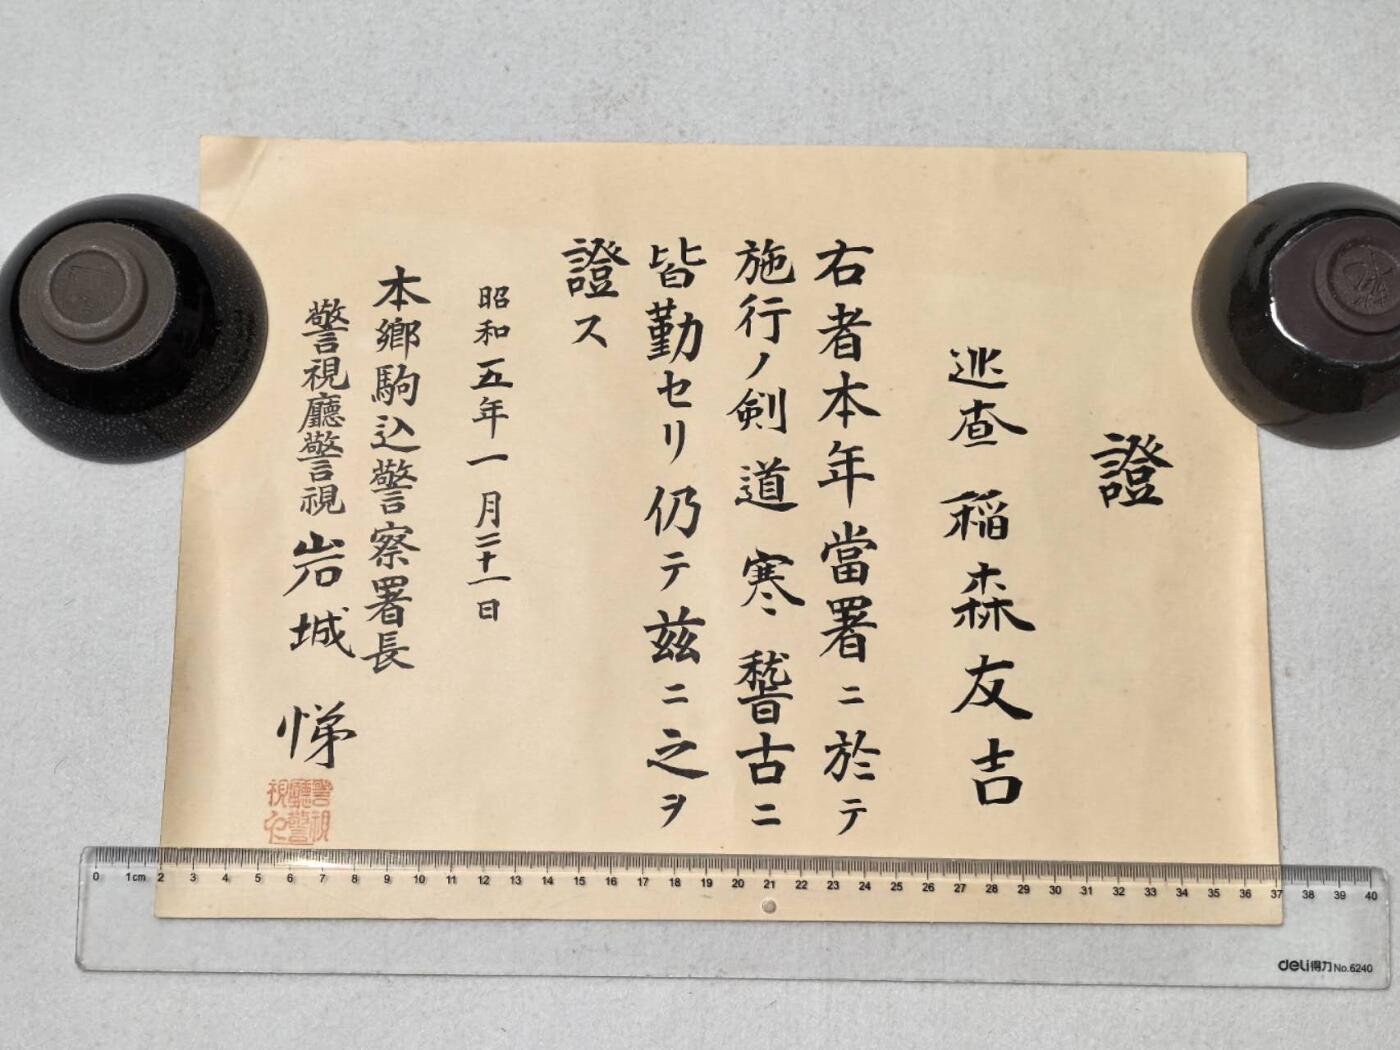 證
巡査 稲森友吉
右者本年當署ニ於テ
施行ノ剣道寒稽古ニ
皆勤セリ仍テ茲ニ之ヲ
證ス
昭和五年一月二十一日
本郷駒込警察署長
警視廳警視 岩城 悌
警視
廳警
視印
0 1cm 2 3 4 5 6 7 8 9 10 11 12 13 14 15 16 17 18 19 20 21 22 23 24 25 26 27 28 29 30 31 32 33 34 35 36 37 38 39 40
deli得力 No.6240